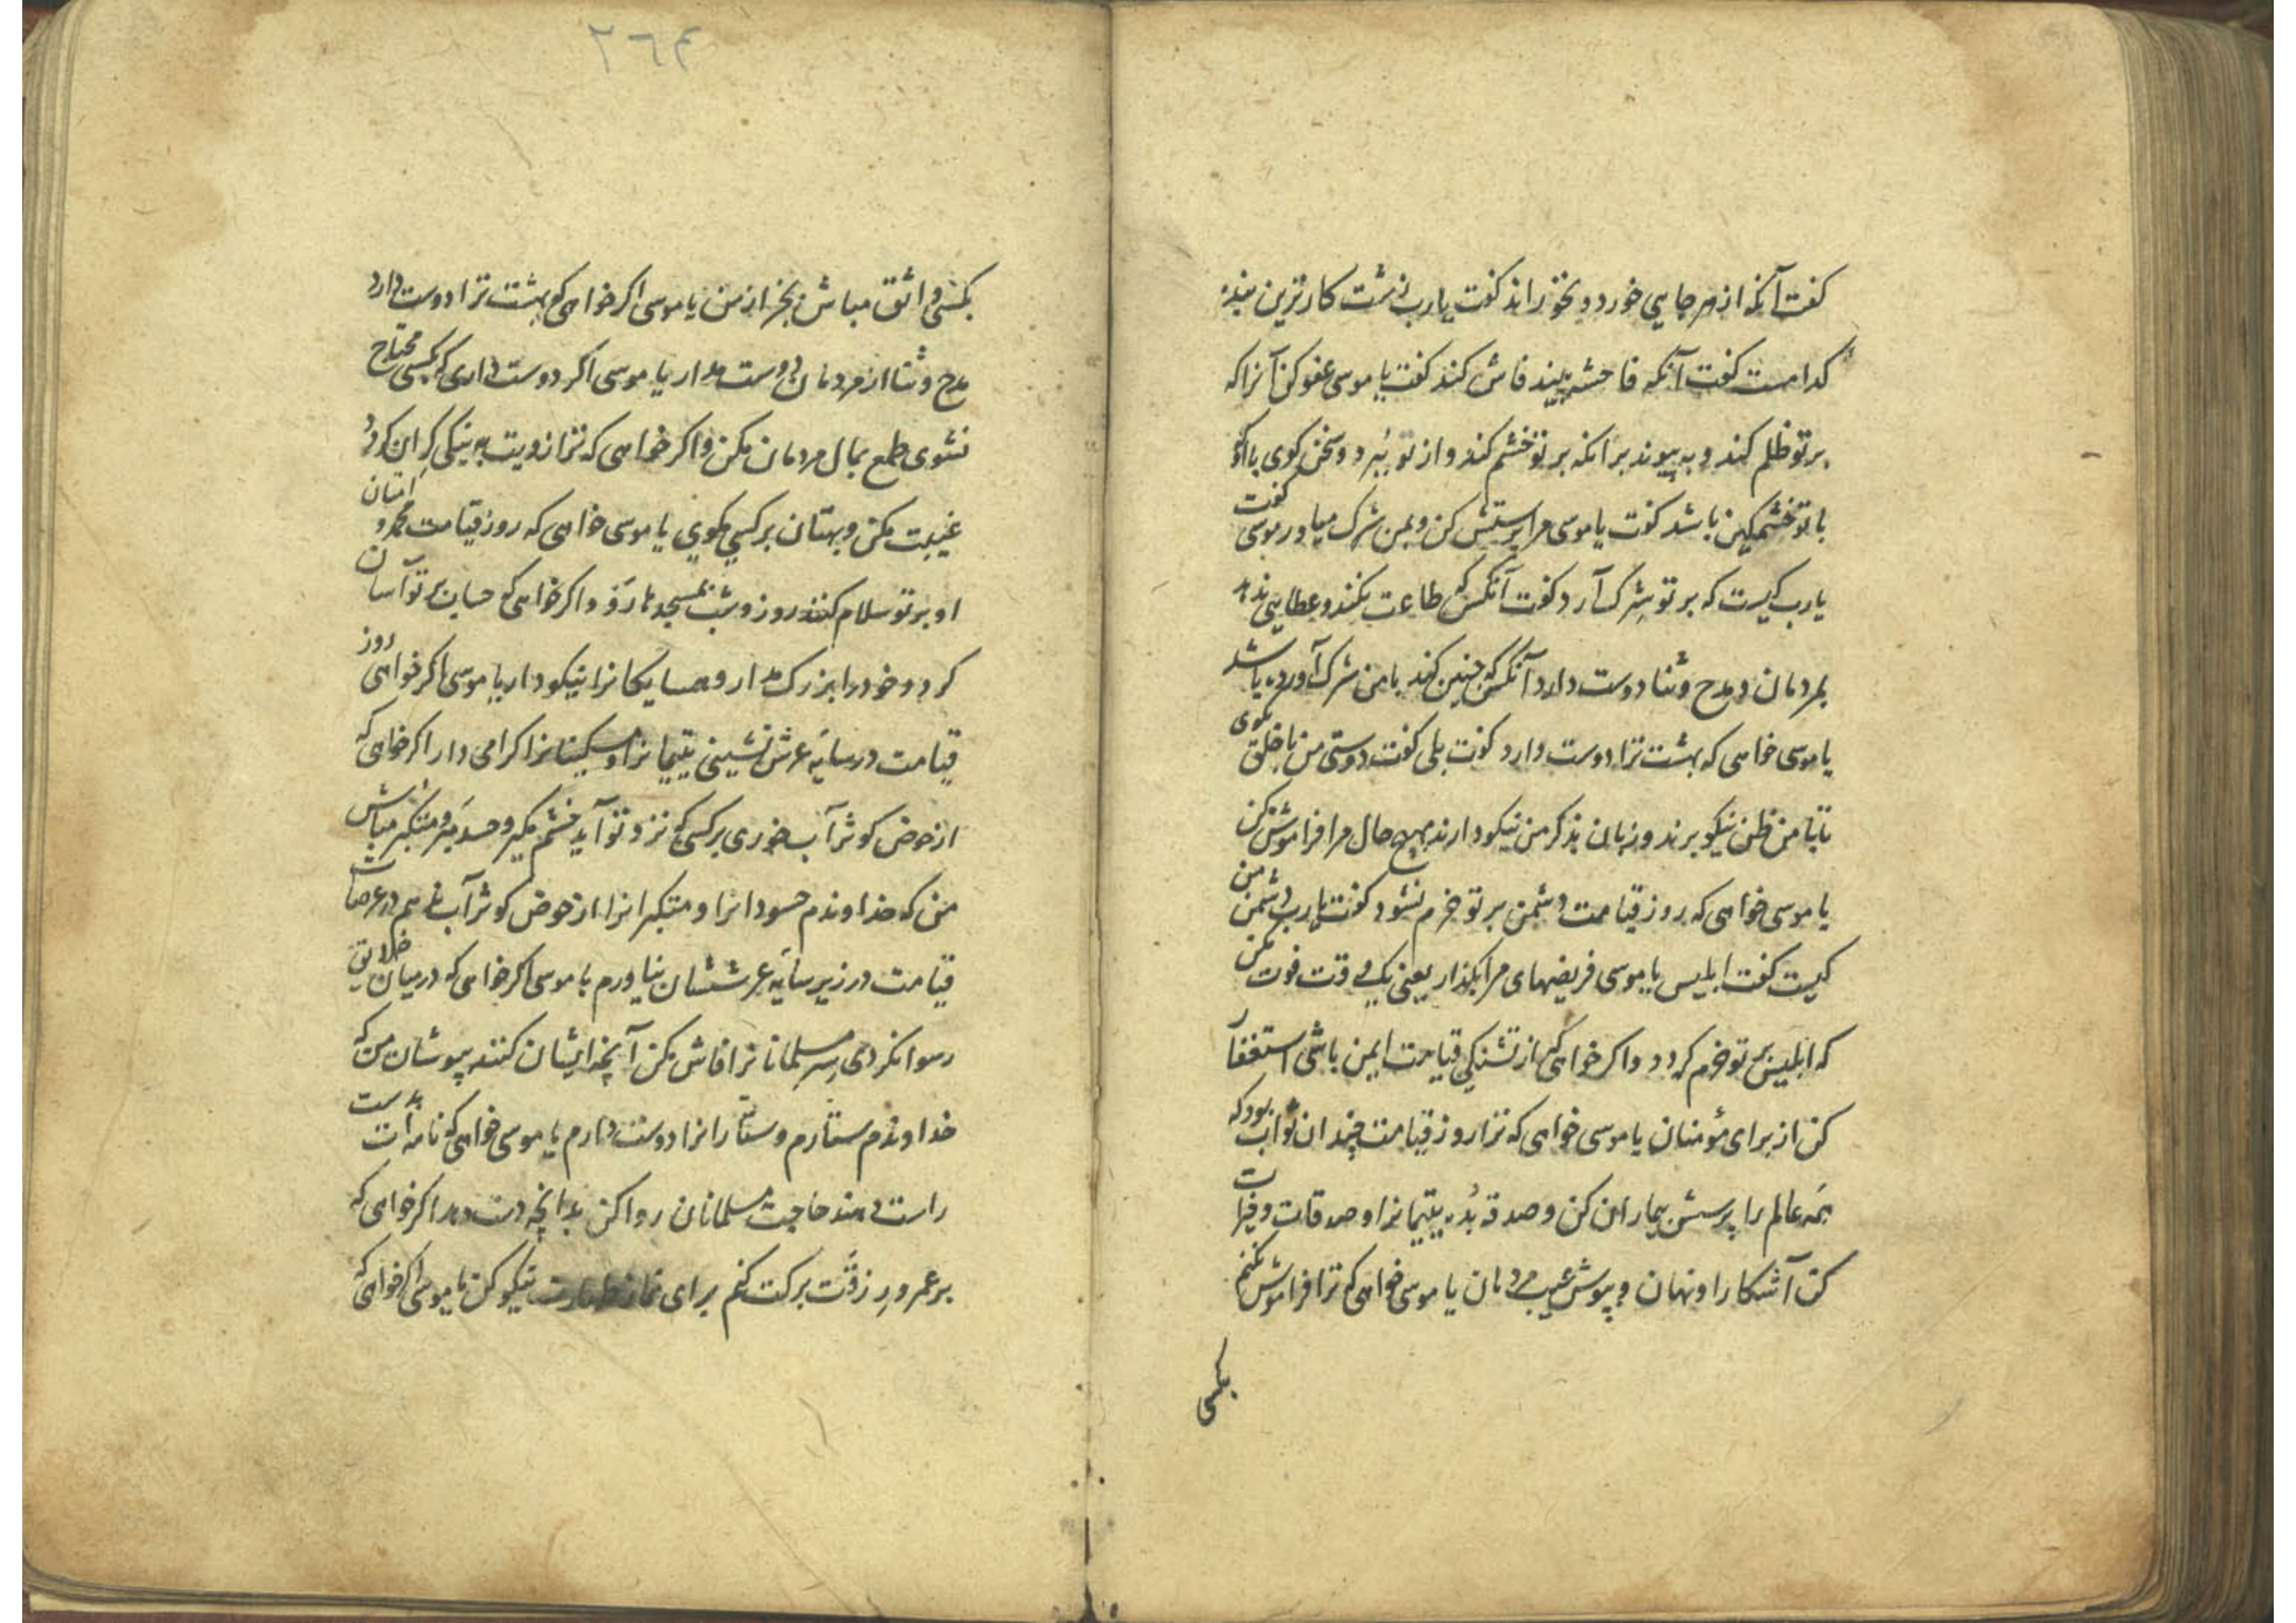 گفت آنکه از هر جایی خورد و بخوراند گفت یارب زشت کارترین بنده
کدامست گفت آنکه فاحشه بیند فاش کند گفت یا موسی عفو کن آنرا که
بر تو ظلم کند و به پیوند بر آنکه بر تو خشم کند و از تو ببرد و سخن کوی با آنکه
با تو خشمکین باشد گفت یا موسی مرا پرستش کن و بمن شرک میاور موسی گفت
یارب کیست که بر تو شرک آرد گفت آنکس که طاعت نکند و عطایی ندهد
بمردمان و مدح و ثنا دوست دارد آنکس که چنین کند با من شرک آورده باشد
یا موسی خواهی که بهشت ترا دوست دارد گفت بلی گفت دوستی من با خلق بکوی
تا با من ظن نیکو برند و زبان بذکر من نیکو دارند بهیچ حال مرا فراموش مکن
یا موسی خواهی که روز قیامت دشمن بر تو خرم نشود گفت یارب دشمن من
کیست گفت ابلیس یا موسی فریضهای مرا بگذار یعنی یکی وقت فوت مکن
که ابلیس بر تو خرم کردد و اکر خواهی که از تشنکی قیامت ایمن باشی استغفار
کن از برای مؤمنان یا موسی خواهی که ترا روز قیامت چندان ثواب بود که
همه عالم را پرسش بیماران کن و صدقه بده یتیمانرا و صدقات و خیرات
کن آشکارا و نهان و بپوش عیب مردمان یا موسی خواهی که ترا فراموش نکنم
بکسی
۲٦۴
بکسی واثق مباش بجز از من یا موسی اکر خواهی که بهشت ترا دوست دارد
مدح و ثنا از مردمان دوست مدار یا موسی اکر دوست داری که بکسی محتاج
نشوی طمع بمال مردمان مکن و اکر خواهی که ترازویت به نیکی کران کردد
غیبت مکن و بهتان بر کسی مکوی یا موسی خواهی که روز قیامت محمد و امتان
او بر تو سلام کنند روز و شب بمسجد ها رو و اکر خواهی که حساب بر تو آسان
کردد خود را بزرک مدار و همسایکانرا نیکو دار یا موسی اکر خواهی روز
قیامت در سایه عرش نشینی یتیمانرا و مسکینانرا کرامی دار اکر خواهی که
از حوض کوثر آب خوری بر کسی که نزد تو آید خشم مکیر و حسد مبر و متکبر مباش
من که خداوندم حسودانرا و متکبرانرا از حوض کوثر آب ندهم در عرصات
قیامت در زیر سایه عرششان نیاورم یا موسی اکر خواهی که در میان خلایق
رسوا نکردی سر مسلمانانرا فاش مکن آنچه ایشان کنند بپوشان من که
خداوندم ستارم و ستارانرا دوست دارم یا موسی خواهی که نامه ات بدست
راست دهند حاجت مسلمانان روا کن بدانچه دست دهد اکر خواهی که
بر عمر و رزقت برکت کنم برای نماز طهارت نیکو کن یا موسی اکر خواهی که